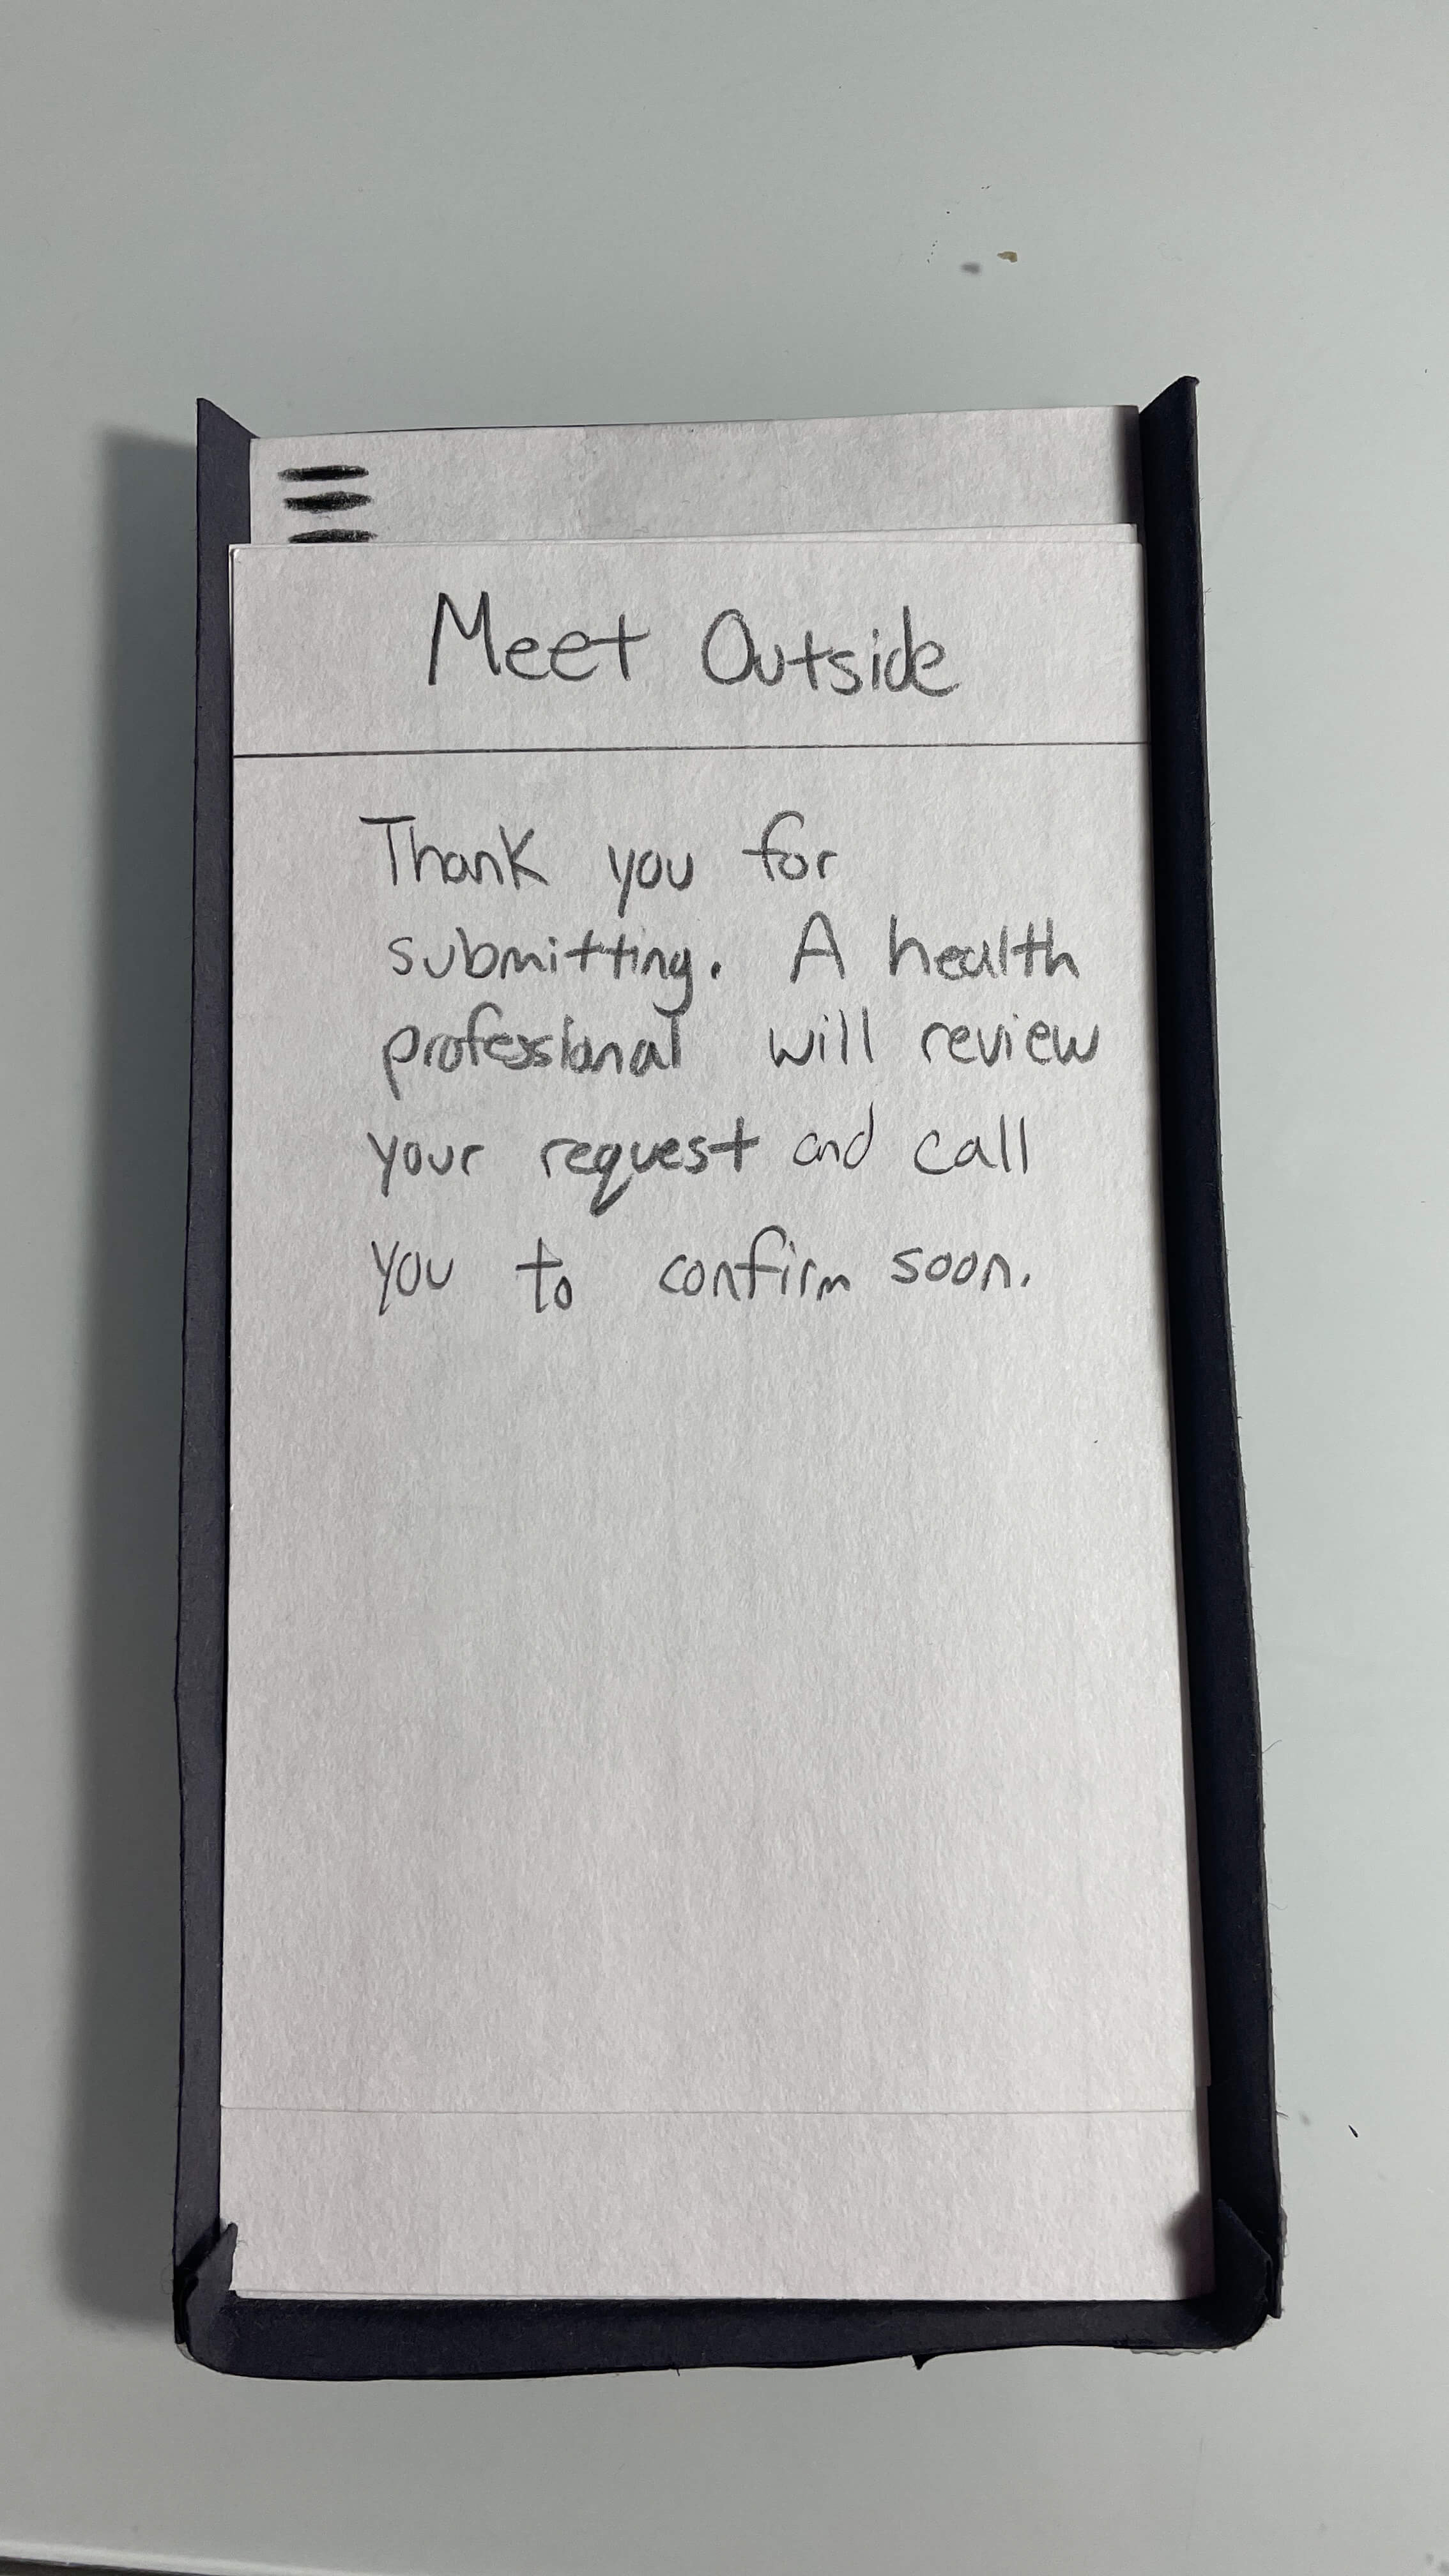 Meet Outside
Thank you for
submitting. A health
professional will review
your request and call
you to confirm soon.